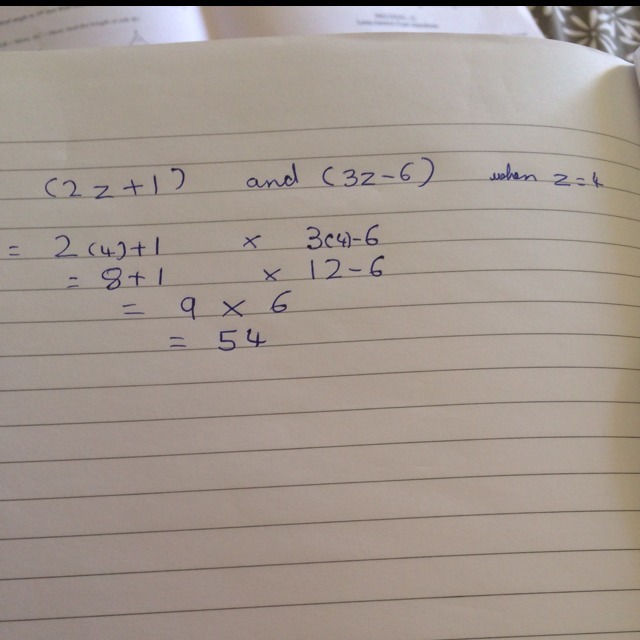 (2z+1) and (3z-6) when z=4
= 2(4)+1 × 3(4)-6
= 8+1 × 12-6
= 9 × 6
= 54